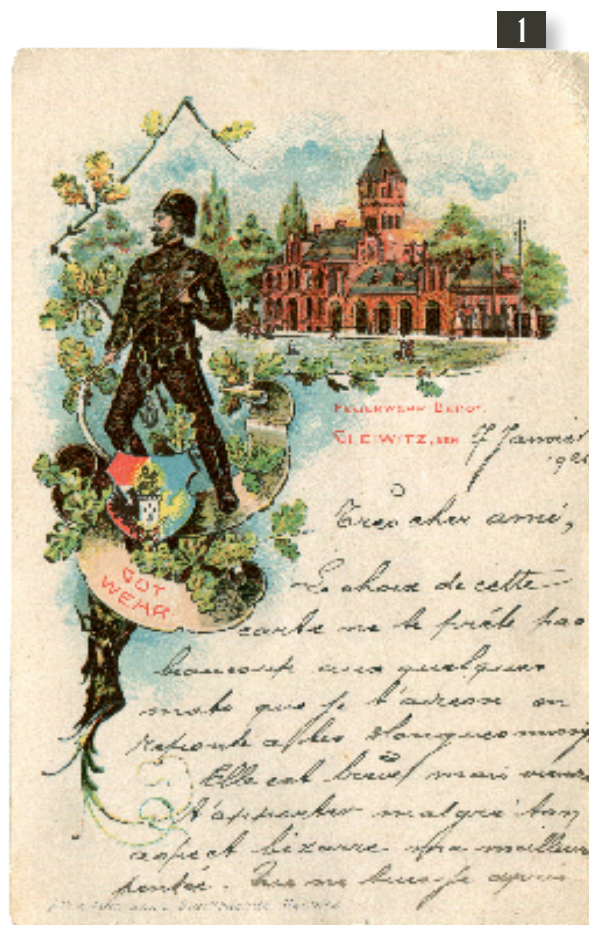 1
FEUERWEHR DEPOT.
GLEIWITZ, DEN 7 Janvier
GUT
WEHR
Tres cher ami,
Le choix de cette
carte ne te prête pas
beaucoup aux quelques
mots que je t'adresse en
réponse a tes
Elle est brève mais
t'apporter malgré ton
aspect bizarre ma meilleure
pensée. je